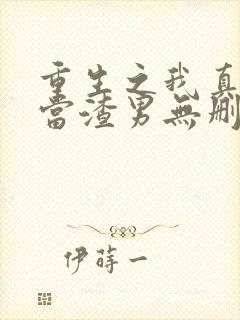 重生之我真
當渣男無刪
伊蒔一